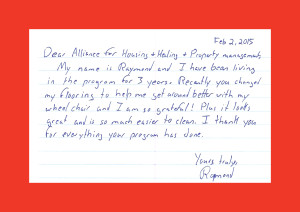 Feb 2, 2015
Dear Alliance for Housing & Healing & Property management,
My name is Raymond and I have been living
in the program for 3 years. Recently you changed
my flooring to help me get around better with my
wheel chair and I am so grateful! Plus it looks
great and is so much easier to clean. I thank you
for everything your program has done.
Yours truly,
Raymond